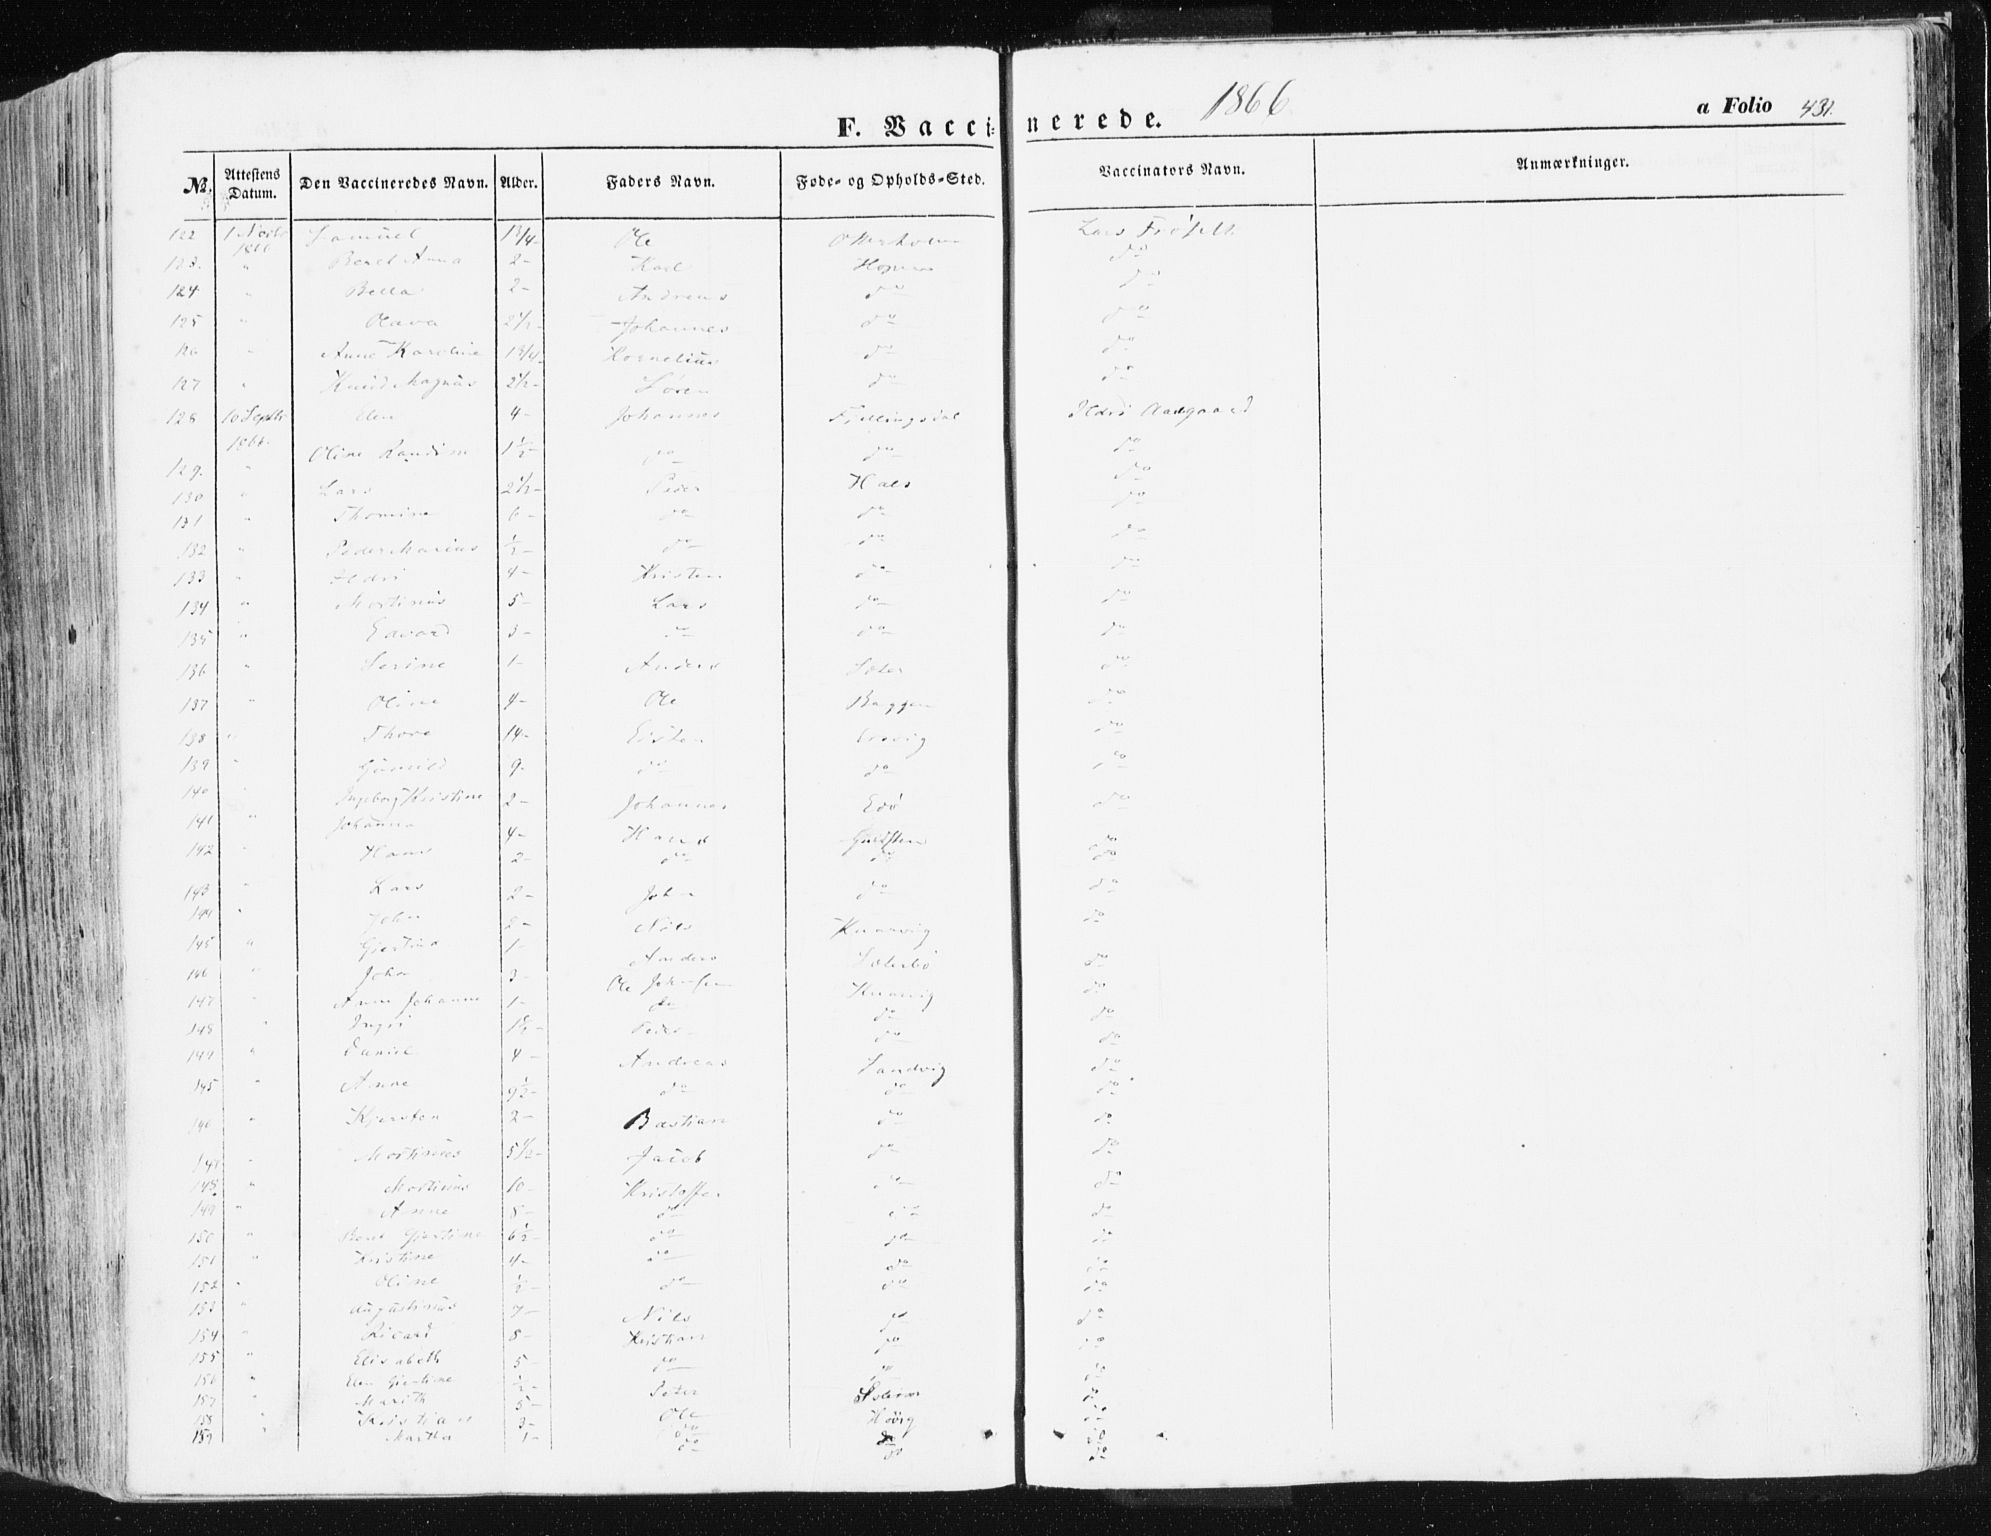 F. Vaccinerede. 1866 a Folio 431.
No. Attestens Datum. Den Vaccineredes Navn. Alder. Faders Navn. Føde- og Opholds-Sted. Vaccinators Navn. Anmærkninger.
122 1 1866 Samuel 1 3/4 - Ole Lars
123. " Beret Anna 2 - Karl do
124 " Bella 2 - Andreas do do
125 " Olava 2 1/2 - Johannes do do
126 " Anne Karoline 1 3/4 - Kornelius do do
127 " Knud Magnus 2 1/2 - Sören do do
128 10 Septbr 1866. Elen 4 - Johannes Fjellingsdal Ildri Aadgaard
129. " Oline Randine 1 1/2 - do do do
130 " Lars 2 1/2 - Peder Hals do
131 " Thomine 6 - do do do
132 " Peder Marius 1/2 - do do do
133 " Ildri 4 - Kristen do do
134 " Mortinus 5 - Lars do do
135 " Edvard 3 - do do do
136 " Serine 1 - Anders Sæter do
137 " Oline 4 - Ole Baggen do
138 " Thore 14 - Eisten do
139 " Gunild 9 - do do do
140 " Ingeborg Kristine 2 - Johannes Edö do
141 " Johanna 4 - Hans do
142 " Hans 2 - do do do
143 " Lars 2 - John do do
144 " John 2 - Nils Knarvig do
145 " Gjertine 1 - Anders Sæterbö do
146 " John 3 - Ole Johnsen Knarvig do
147 " Anne Johanne 1 - do do do
148 " Ingri Peder do do
149 " Daniel 4 - Andreas Sandvig do
145 " Anne 9 1/2 - do do do
146 " Kjersten 2 - Bastian do do
" Mortinus 5 1/2 - Jacob do do
148 " Mortinus 10 - Kristoffer do do
149 " Anne 8 - do do do
150 " Beret Gjertine 6 1/2 - do do do
151 " Kristine 4 - do do do
152 " Oline 1/2 - do do do
153 " Augustinus 7 - Nils do do
154 " Ricard 8 - Kristian do do
155 " Elisabeth 5 - do do do
156 " Elen Gjertine 1/2 - Peter do
157 " Marith 5 - Ole do
158 " Kristian 3 - do do
159 Martha 1 - do do do